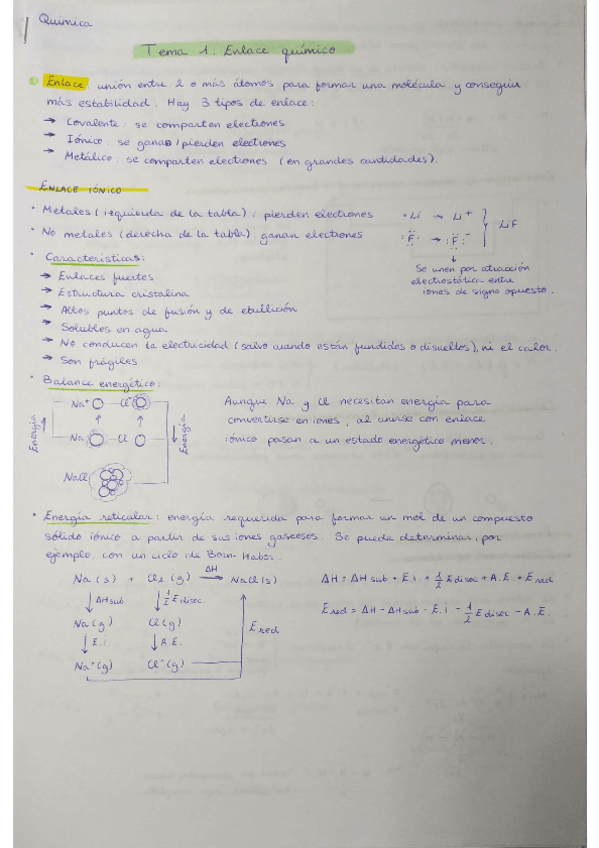 Química
Tema 1. Enlace químico
Enlace: unión entre 2 o más átomos para formar una molécula y conseguir
más estabilidad. Hay 3 tipos de enlace:
→ Covalente: se comparten electrones
→ Iónico: se ganan/pierden electrones
→ Metálico: se comparten electrones (en grandes cantidades).
ENLACE IÓNICO
• Metales (izquierda de la tabla): pierden electrones
• No metales (derecha de la tabla): ganan electrones
• Li → Li⁺
F → F⁻
LiF
Se unen por atracción
electrostática entre
iones de signo opuesto.
• Características:
→ Enlaces fuertes
→ Estructura cristalina
→ Altos puntos de fusión y de ebullición
→ Solubles en agua
→ No conducen la electricidad (salvo cuando están fundidos o disueltos), ni el calor.
→ Son frágiles
• Balance energético:
Energía
Na⁺ Cl⁻
Na Cl
NaCl
Energía
Aunque Na y Cl necesitan energía para
convertirse en iones, al unirse con enlace
iónico pasan a un estado energético menor.
• Energía reticular: energía requerida para formar un mol de un compuesto
sólido iónico a partir de sus iones gaseosos. Se puede determinar, por
ejemplo, con un ciclo de Born-Haber.
ΔH
Na (s) + Cl₂ (g) → NaCl (s)
↓ ΔH sub ↓ 1/2 E disoc
Na (g) Cl (g)
↓ E.i. ↓ A.E.
Na⁺ (g) Cl⁻ (g)
E red
ΔH = ΔH sub + E.i. + 1/2 E disoc + A.E. + E red
E red = ΔH - ΔH sub - E.i. - 1/2 E disoc - A.E.